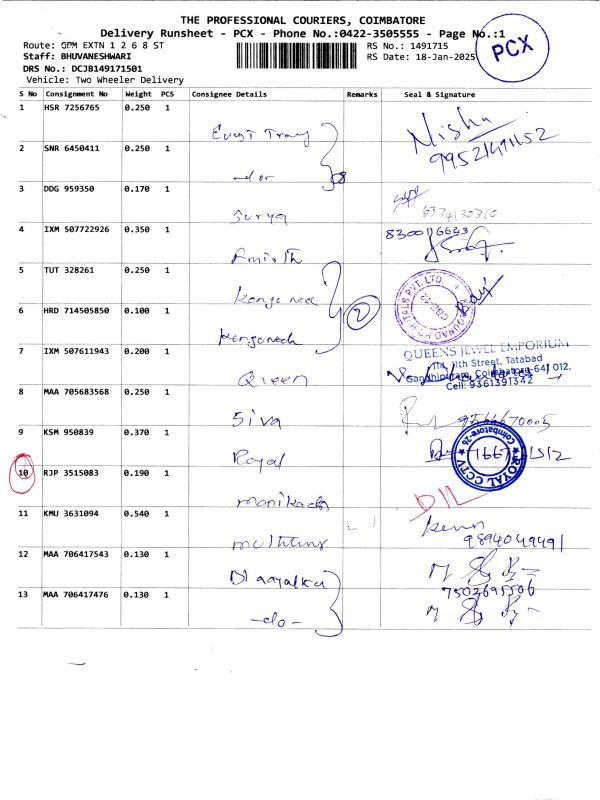 THE PROFESSIONAL COURIERS, COIMBATORE
Delivery Runsheet - PCX - Phone No.:0422-3505555 - Page No.:1
PCX
Route: GPM EXTN 1 2 6 8 ST
RS No.: 1491715
Staff: BHUVANESHWARI
RS Date: 18-Jan-2025
DRS No.: DCJB149171501
Vehicle: Two Wheeler Delivery
S No Consignment No Weight PCS Consignee Details Remarks Seal & Signature
1 HSR 7256765 0.250 1
Nisha
9952141152
2 SNR 6450411 0.250 1
-do-
3 DDG 959350 0.170 1
Surya
6374130360
4 IXM 507722926 0.350 1
8300116643
5 TUT 328261 0.250 1
6 HRD 714505850 0.100 1
2
7 IXM 507611943 0.200 1
Queen
QUEENS JEWEL EMPORIUM
11th Street, Tatabad
Gandhipuram, Coimbatore-641 012.
Cell: 9361391342
8 MAA 705683568 0.250 1
Siva
9566670005
9 KSM 950839 0.370 1
Royal
ROYAL CCTV
Coimbatore-26
10 RJP 3515083 0.190 1
D/L
11 KMU 3631094 0.540 1
9894049491
12 MAA 706417543 0.130 1
7502695506
13 MAA 706417476 0.130 1
-do-